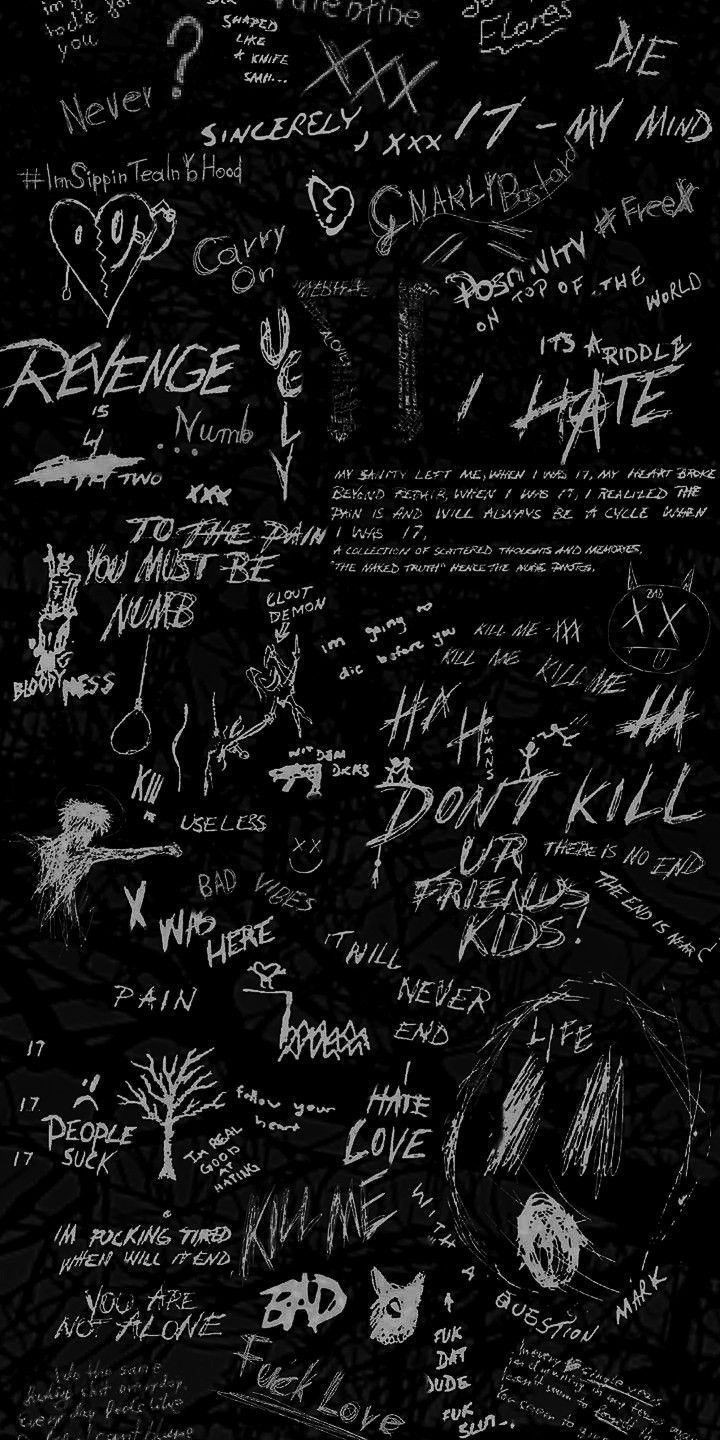 Valentine
you
SHAPED
LIKE
A KNIFE
SMH...
?
Flores
DIE
XXX
Never
SINCERELY, XXX
17 - MY MIND
#ImSippinTeaInYoHood
GNARLY Bastard
#FreeX
Carry
On
POSITIVITY
ON TOP OF THE WORLD
MEDITATE
REVENGE
IS
4
TWO
UGLY
...Numb
XXX
ITS A RIDDLE
I HATE
MY SANITY LEFT ME, WHEN I WAS 17, MY HEART BROKE
BEYOND REPAIR, WHEN I WAS 17, I REALIZED THE
PAIN IS AND WILL ALWAYS BE A CYCLE WHEN
I WAS 17.
A COLLECTION OF SCATTERED THOUGHTS AND MEMORIES,
"THE NAKED TRUTH" HENCE THE NUDE PHOTOS.
TO THE PAIN
YOU MUST BE
NUMB
CLOUT
DEMON
BLOODY MESS
im going to
die before you
KILL ME - XXX
KILL ME
KILL ME
BAD
X X
HA
HA
HUMANS
DON'T KILL
UR
FRIENDS
KIDS!
THERE IS NO END
THE END IS NEAR
KIll
USELESS
BAD VIBES
X WAS
HERE
IT WILL
NEVER
END
PAIN
LIFE
17
17
17
PEOPLE
SUCK
follow your
heart
IM REAL
GOOD
AT
HATING
I
HATE
LOVE
KILL ME
IM FUCKING TIRED
WHEN WILL IT END
WITH A QUESTION MARK
YOU ARE
NOT ALONE
BAD
A
FUK
DAT
DUDE
FUK
Fuck Love